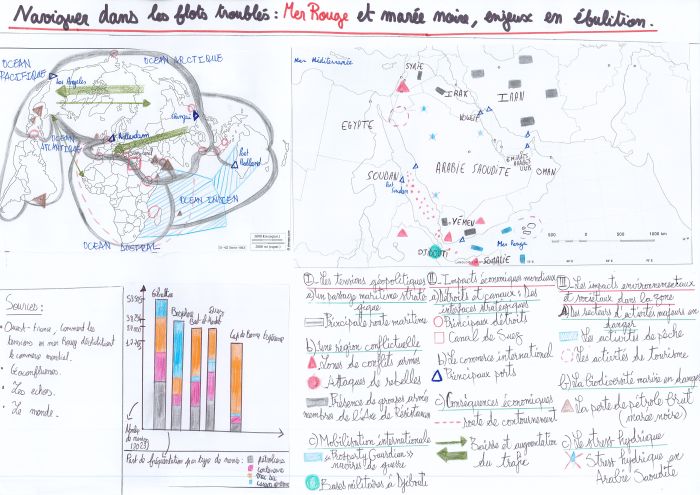 Naviguer dans les flots troublés : Mer Rouge et marée noire, enjeux en ébullition.
OCEAN PACIFIQUE
OCEAN ARCTIQUE
Los Angeles
OCEAN ATLANTIQUE
Rotterdam
Shangai
Port Hedland
OCEAN INDIEN
OCEAN AUSTRAL
Mer Méditerranée
SYRIE
IRAK
IRAN
EGYPTE
ARABIE SAOUDITE
EMIRATS ARABES UNIS
OMAN
SOUDAN
Port Soudan
YEMEN
Mer Rouge
DJIBOUTI
SOMALIE
500
1000 km
Sources :
• Ouest-France, comment les tensions en mer Rouge déstabilisent le commerce mondial.
• Géoconfluences.
• Les echos.
• Le monde.
Gibraltar
Bosphore
Suez
Bab-el-Mandeb
Cap de Bonne Espérance
Nombre de navires (2023)
Part de fréquentation par type de navires :
Pétroliers
I_ Les tensions géopolitiques
a) Un passage maritime stratégique
Principale route maritime
b) une région conflictuelle
Zones de conflits armés
Attaques de rebelles
Présence de groupes armés membres de l'Axe de Résistance
c) Mobilisation internationale
« Property Guardian » navires de guerre
Bases militaires à Djibouti
II_ Impacts économiques mondiaux
a) Détroits et canaux : Des interfaces stratégiques
Principaux détroits
Canal de Suez
b) Le commerce international
Principaux ports
c) Conséquences économiques
route de contournement
Baisse et augmentation du trafic
III_ Les impacts environnementaux et sociétaux dans la zone
a) Des secteurs d'activités majeurs en danger
Les activités de pêche
Les activités de tourisme
b) La biodiversité marine en danger
La perte de pétrole brut (marée noire)
c) Le stress hydrique
Stress hydrique en Arabie Saoudite